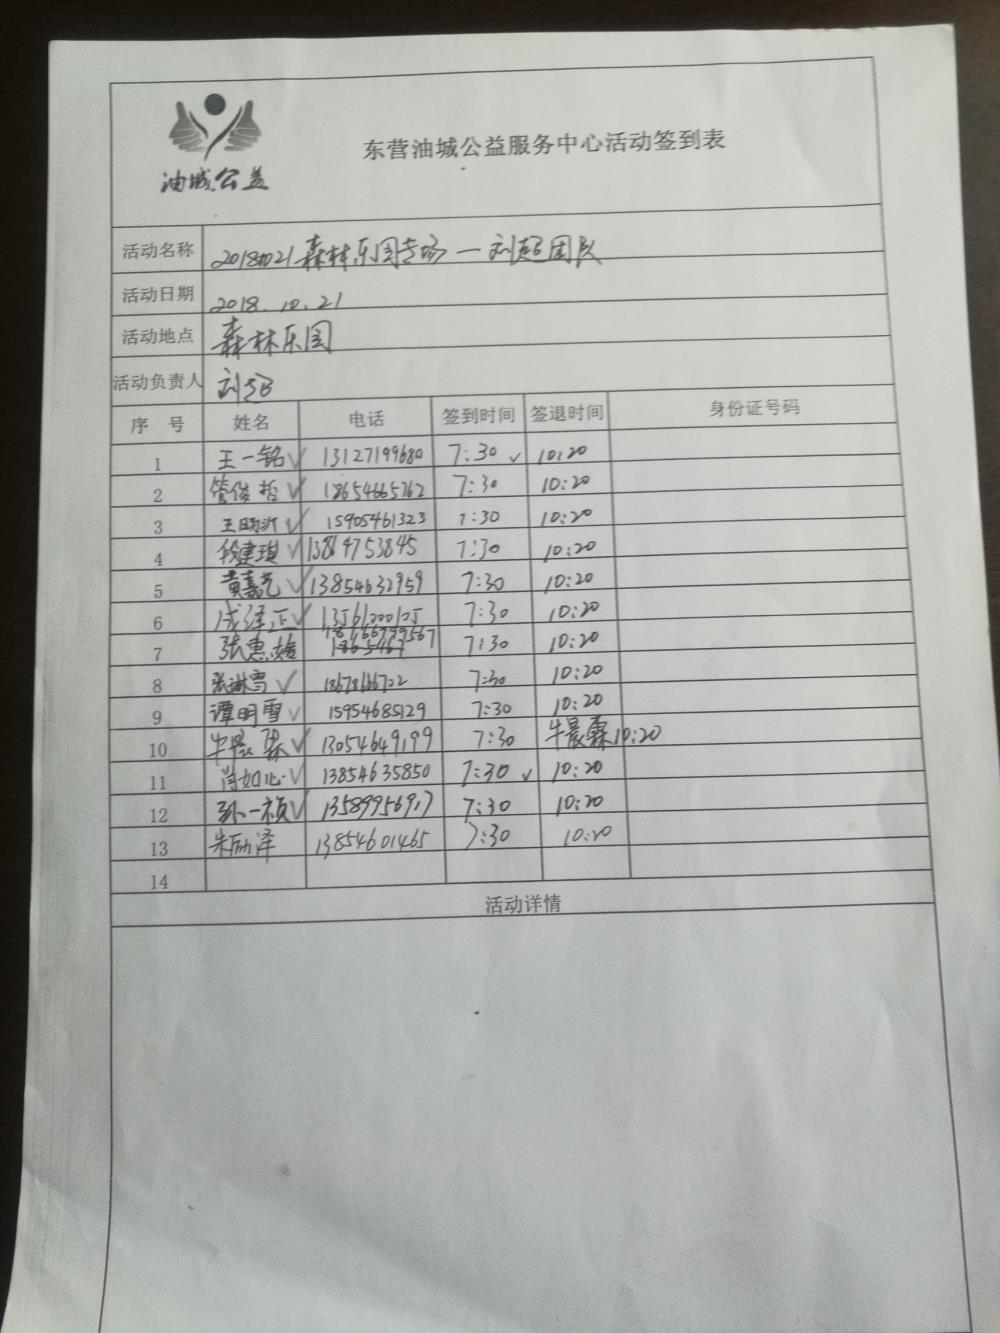 油城公益
东营油城公益服务中心活动签到表
活动名称 20181021森林乐园专场一刘超团队
活动日期 2018.10.21
活动地点 森林乐园
活动负责人 刘超
序 号 姓名 电话 签到时间 签退时间 身份证号码
1 王一铭✓ 13127199680 7:30 ✓ 10:20
2 管俊哲✓ 18654665762 7:30 10:20
3 王旸沂✓ 15905461323 7:30 10:20
4 段建琪✓ 13864753845 7:30 10:20
5 黄嘉艺✓ 13854632959 7:30 10:20
6 成泽正✓ 13561200105 7:30 10:20
7 张惠 18766799567 7:30 10:20
8 张琳雪✓ 18678666722 7:30 10:20
9 谭明雪✓ 15954685129 7:30 10:20
10 牛晨霖✓ 13054649199 7:30 牛晨霖10:20
11 肖如心✓ 13854635850 7:30 ✓ 10:20
12 孙一祯✓ 13589956917 7:30 10:20
13 朱励泽 13854601465 7:30 10:20
14
活动详情